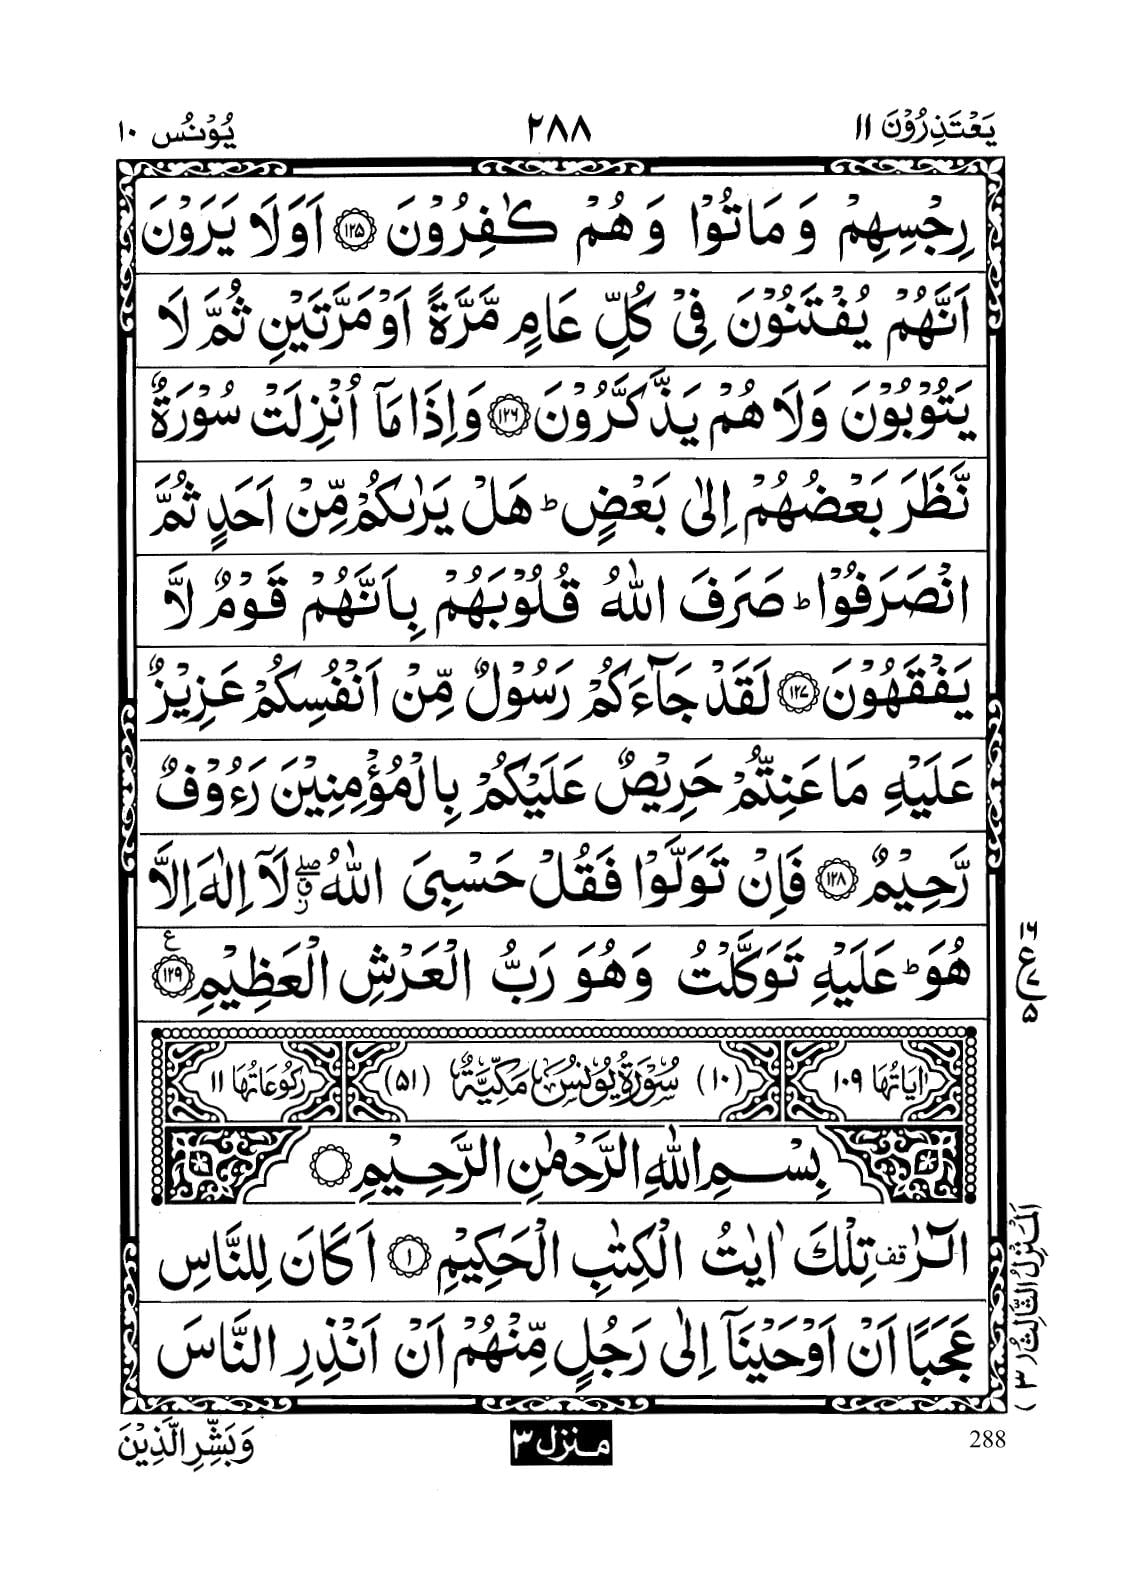 يَعْتَذِرُوْنَ ۱۱ ۲۸۸ يُوْنُس ۱۰
رِجْسِهِمْ وَ مَاتُوْا وَ هُمْ كٰفِرُوْنَ ۝۱۲۵ اَوَلَا يَرَوْنَ
اَنَّهُمْ يُفْتَنُوْنَ فِيْ كُلِّ عَامٍ مَّرَّةً اَوْ مَرَّتَيْنِ ثُمَّ لَا
يَتُوْبُوْنَ وَلَا هُمْ يَذَّكَّرُوْنَ ۝۱۲۶ وَاِذَا مَاۤ اُنْزِلَتْ سُوْرَةٌ
نَّظَرَ بَعْضُهُمْ اِلٰى بَعْضٍ ؕ هَلْ يَرٰىكُمْ مِّنْ اَحَدٍ ثُمَّ
انْصَرَفُوْا ؕ صَرَفَ اللّٰهُ قُلُوْبَهُمْ بِاَنَّهُمْ قَوْمٌ لَّا
يَفْقَهُوْنَ ۝۱۲۷ لَقَدْ جَآءَكُمْ رَسُوْلٌ مِّنْ اَنْفُسِكُمْ عَزِيْزٌ
عَلَيْهِ مَا عَنِتُّمْ حَرِيْصٌ عَلَيْكُمْ بِالْمُؤْمِنِيْنَ رَءُوْفٌ
رَّحِيْمٌ ۝۱۲۸ فَاِنْ تَوَلَّوْا فَقُلْ حَسْبِيَ اللّٰهُ ۖ ز ق لَاۤ اِلٰهَ اِلَّا
هُوَ ؕ عَلَيْهِ تَوَكَّلْتُ وَهُوَ رَبُّ الْعَرْشِ الْعَظِيْمِ ۝۱۲۹ ع
۱۶ ع ۷ ۵
اٰيَاتُهَا ۱۰۹ (۱۰) سُوْرَةُ يُوْنُسَ مَكِّيَّةٌ (۵۱) رُكُوْعَاتُهَا ۱۱
بِسْمِ اللّٰهِ الرَّحْمٰنِ الرَّحِيْمِ ۝
الٓرٰ قف تِلْكَ اٰيٰتُ الْكِتٰبِ الْحَكِيْمِ ۝۱ اَكَانَ لِلنَّاسِ
عَجَبًا اَنْ اَوْحَيْنَاۤ اِلٰى رَجُلٍ مِّنْهُمْ اَنْ اَنْذِرِ النَّاسَ
اَلْمَنْزِلُ الثَّالِثُ (۳)
وَبَشِّرِ الَّذِيْنَ منزل ۳ 288